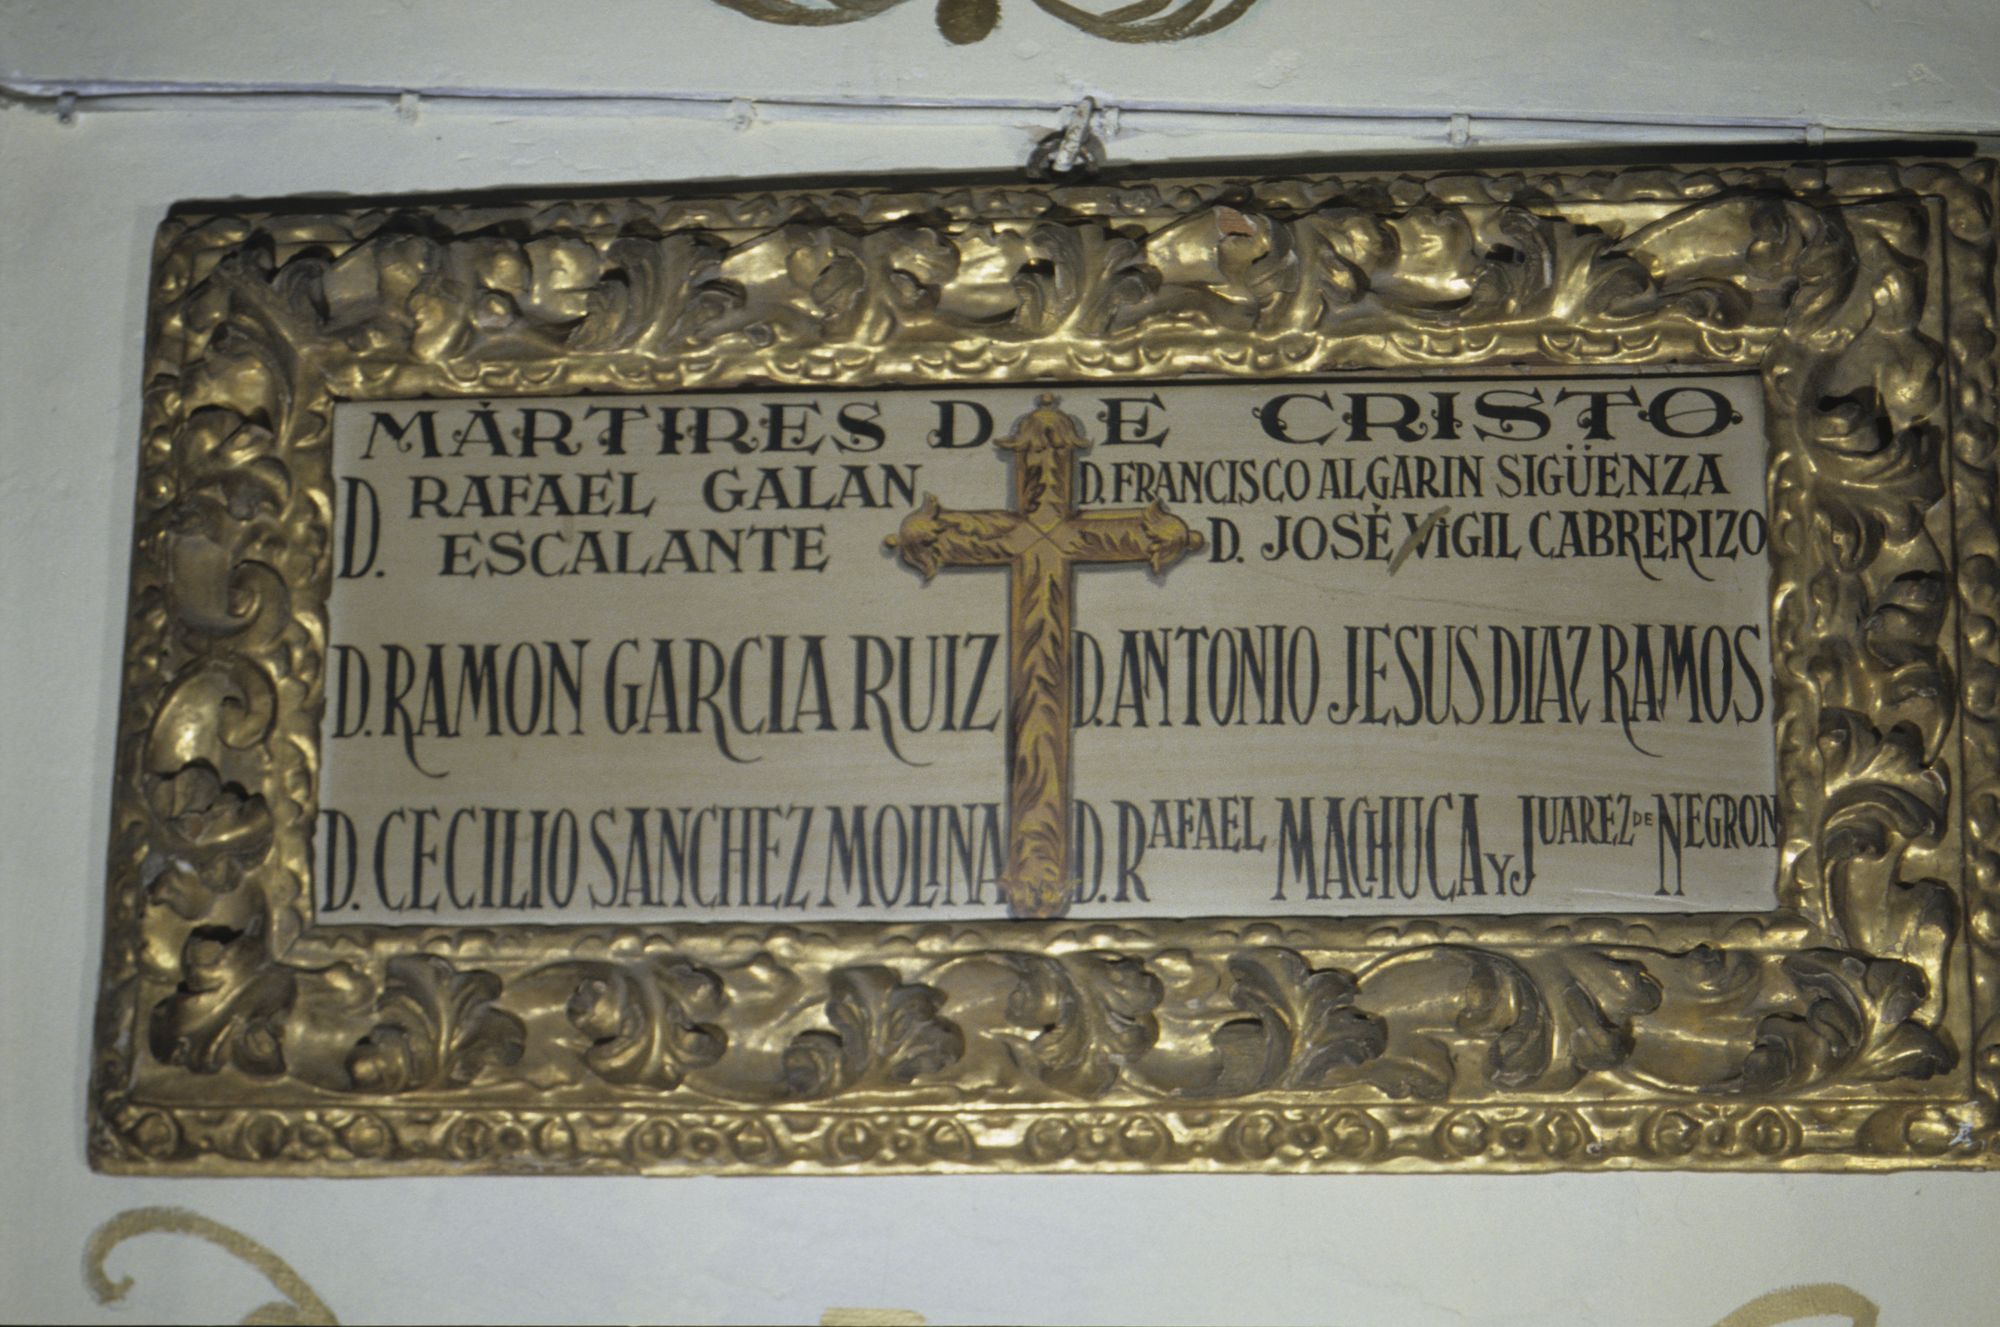 MÁRTIRES DE CRISTO
D. RAFAEL GALAN
ESCALANTE
D. FRANCISCO ALGARIN SIGÜENZA
D. JOSÉ VIGIL CABRERIZO
D. RAMON GARCIA RUIZ
D. ANTONIO JESUS DIAZ RAMOS
D. CECILIO SANCHEZ MOLINA
D. RAFAEL MACHUCA Y JUAREZ DE NEGRON